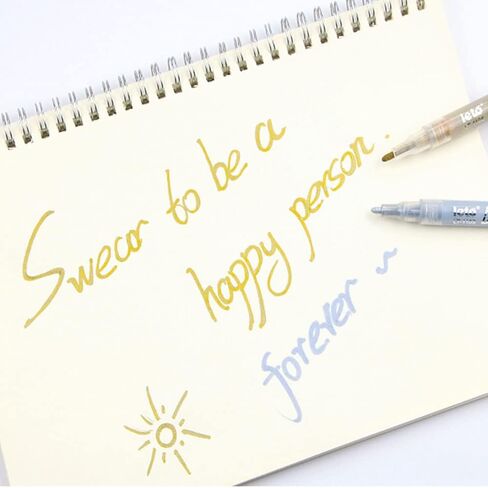 Swear to be a
happy person.
forever ~
leto
leto